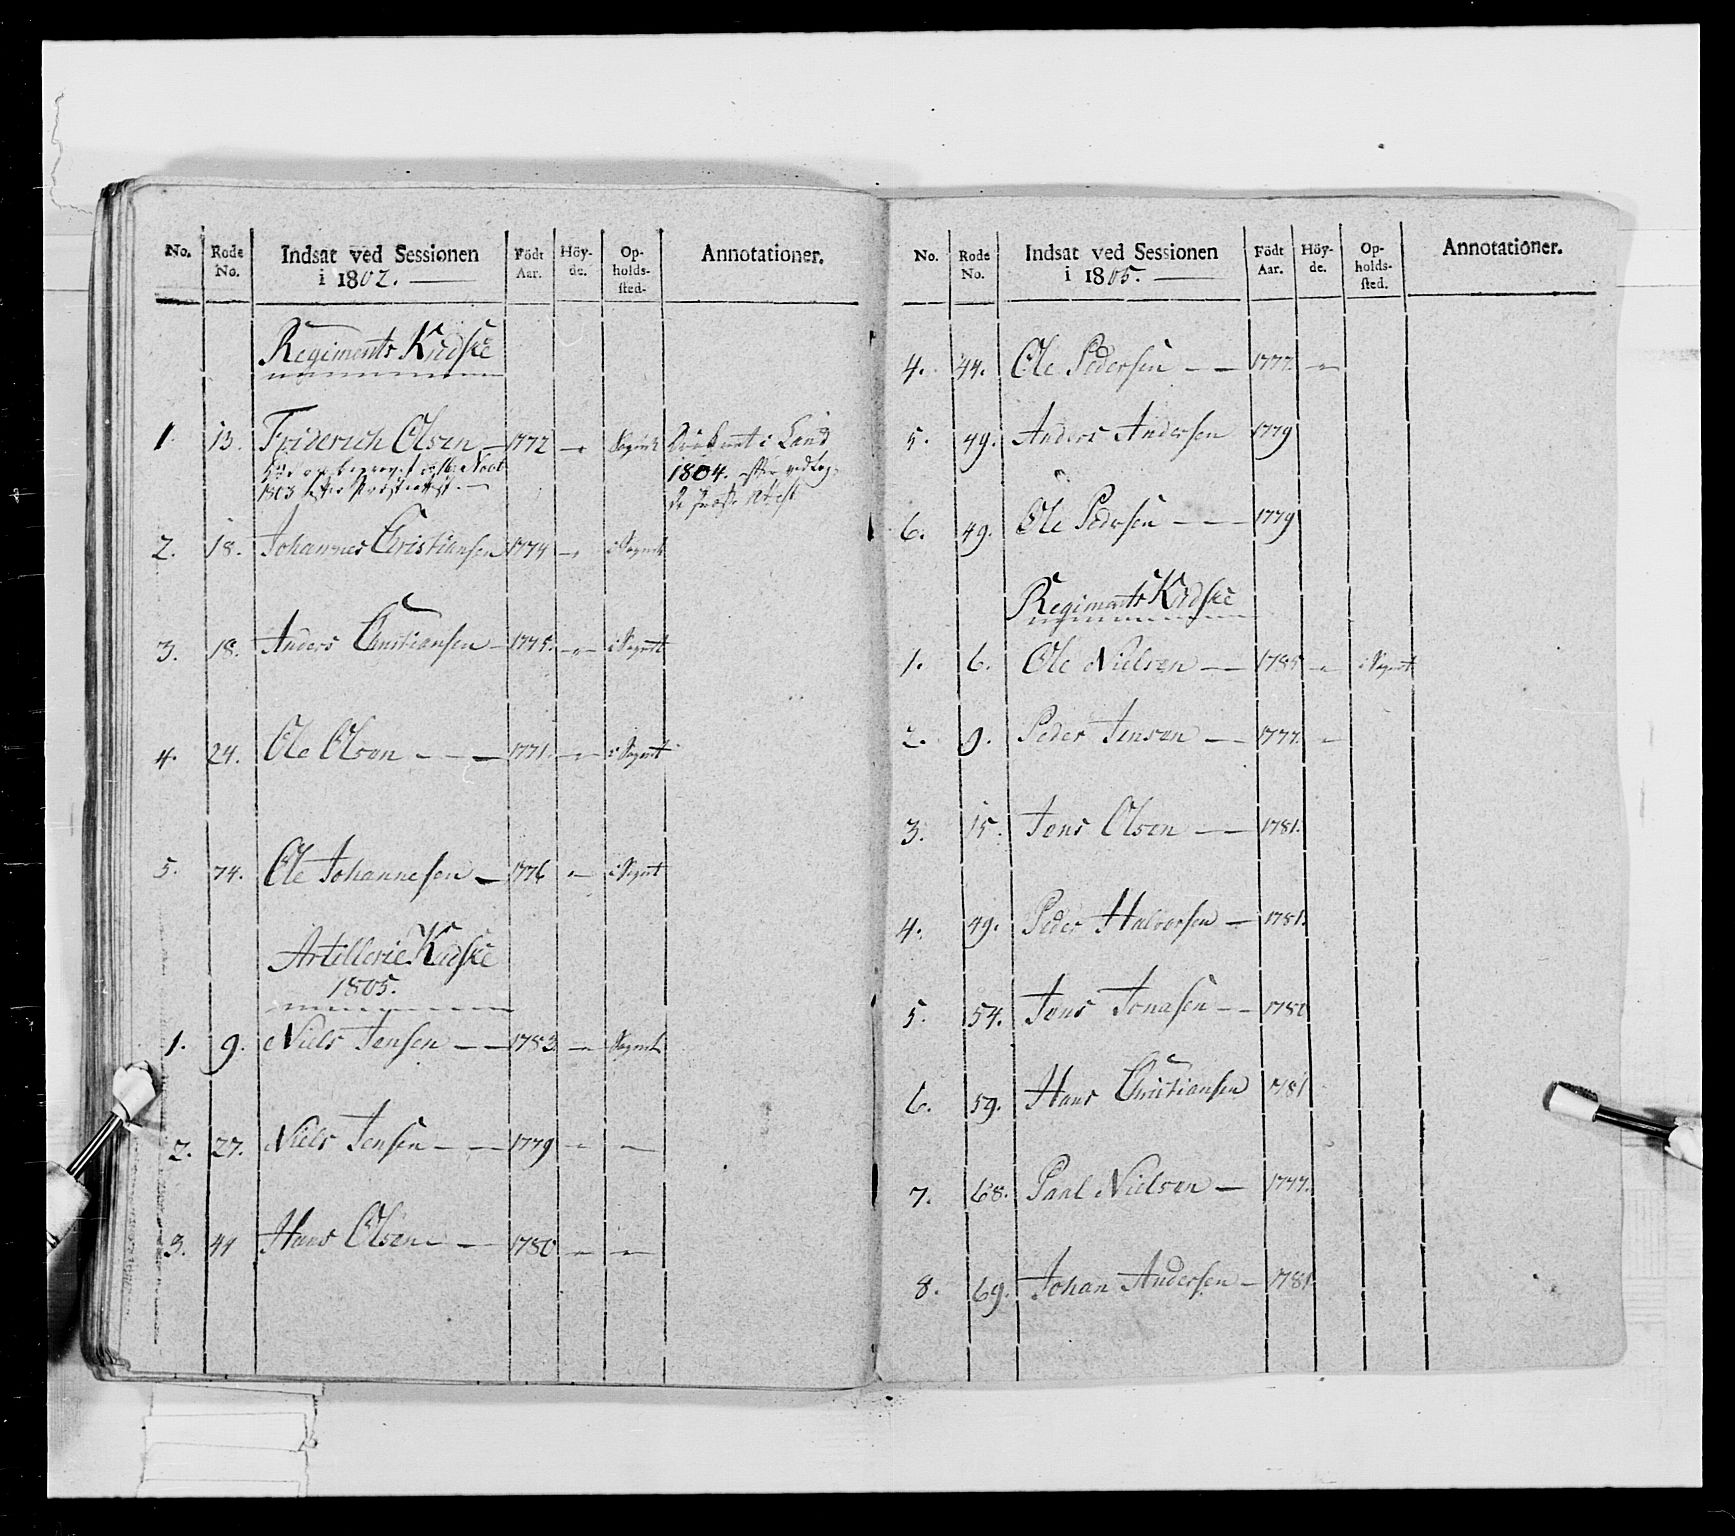 No. Rode No. Indsat ved Sessionen i 1802. Födt Aar. Höyde. Opholdssted. Annotationer.
Regiments Kudske
1. 13. Friderich Olsen 1772
1803
1804.
2. 18. Johannes Christiansen 1774 i Sognet
3. 18. Anders Christiansen 1775. i Sognet
4. 24. Ole Olsen 1771. i Sognet
5. 74. Ole Johannesen 1776 i Sognet
Artillerie Kudske
1805.
1. 9. Niels Jensen 1783 Sognet
2. 27. Niels Jensen 1779
3. 44 Hans Olsen 1780
No. Rode No. Indsat ved Sessionen i 1805. Födt Aar. Höyde. Opholdssted. Annotationer.
4. 44. Ole Pedersen 1777.
5. 49. Anders Andersen 1779
6. 49. Ole Pedersen 1779
Regiments Kudske
1. 6. Ole Nielsen 1785 i Sognet
2. 9. Peder Jensen 1777.
3. 15. Jens Olsen 1781.
4. 49. Peder Halvorsen 1781.
5. 54. Jens Jonasen 1780
6. 59. Hans Christiansen 1781
7. 68. Paul Nielsen 1777.
8. 69. Johan Andersen 1781.